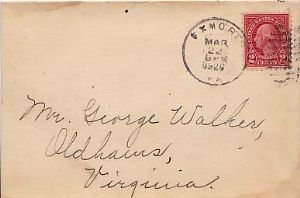 EXMORE
MAR
22
6 PM
1926
VA.
2 CENTS 2
Mr. George Walker,
Oldhams,
Virginia.